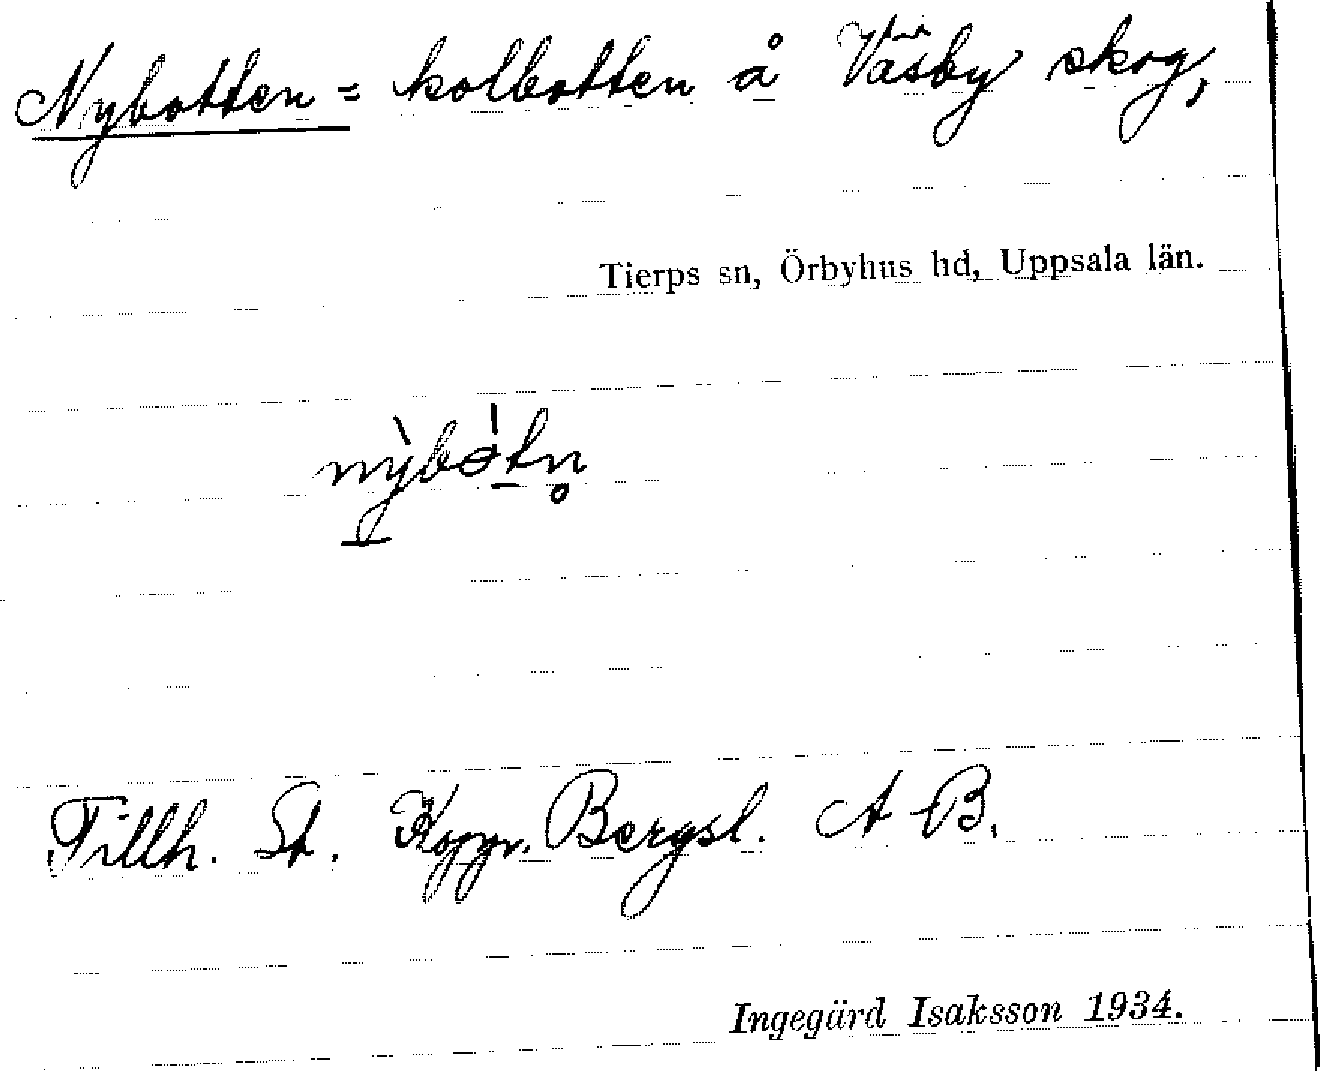 Nybotten = kolbotten å Väsby skog,
Tierps sn, Örbyhus hd, Uppsala län.
nỳbòtn̥
Tillh. St. Koppr. Bergsl. A B.
Ingegärd Isaksson 1934.